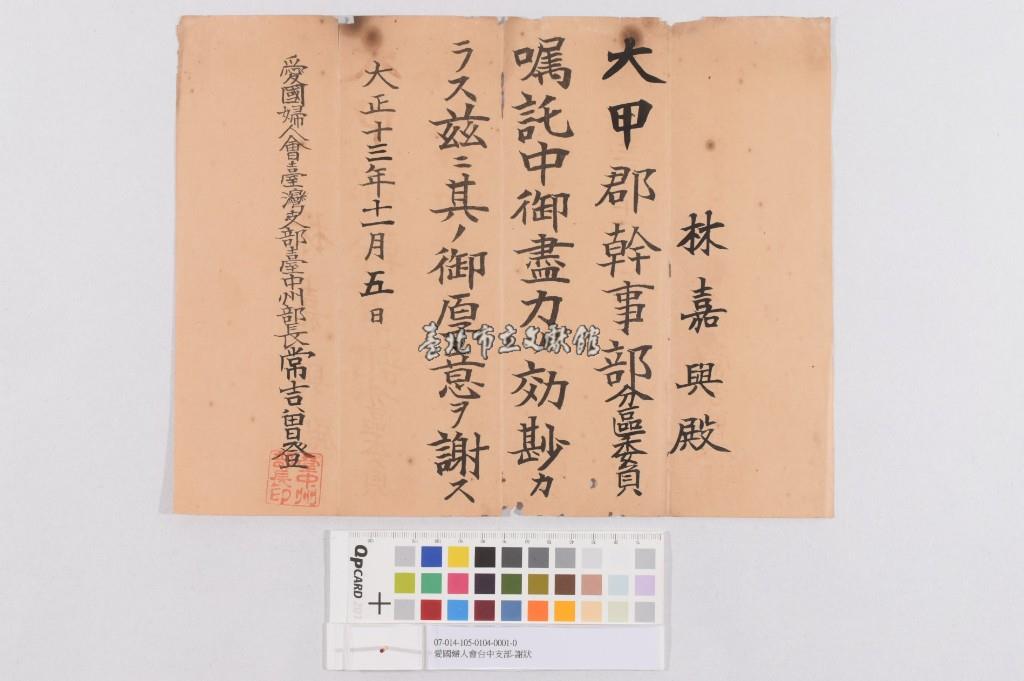 林嘉興殿
大甲郡幹事部分區委員
囑託中御盡力ノ効尠カ
ラス茲ニ其ノ御厚意ヲ謝ス
大正十三年十一月五日
愛國婦人會臺灣支部臺中州部長常吉曾登
臺中州
部長印
臺北市立文獻館
QPCARD 201
07-014-105-0104-0001-0
愛國婦人會台中支部-謝狀